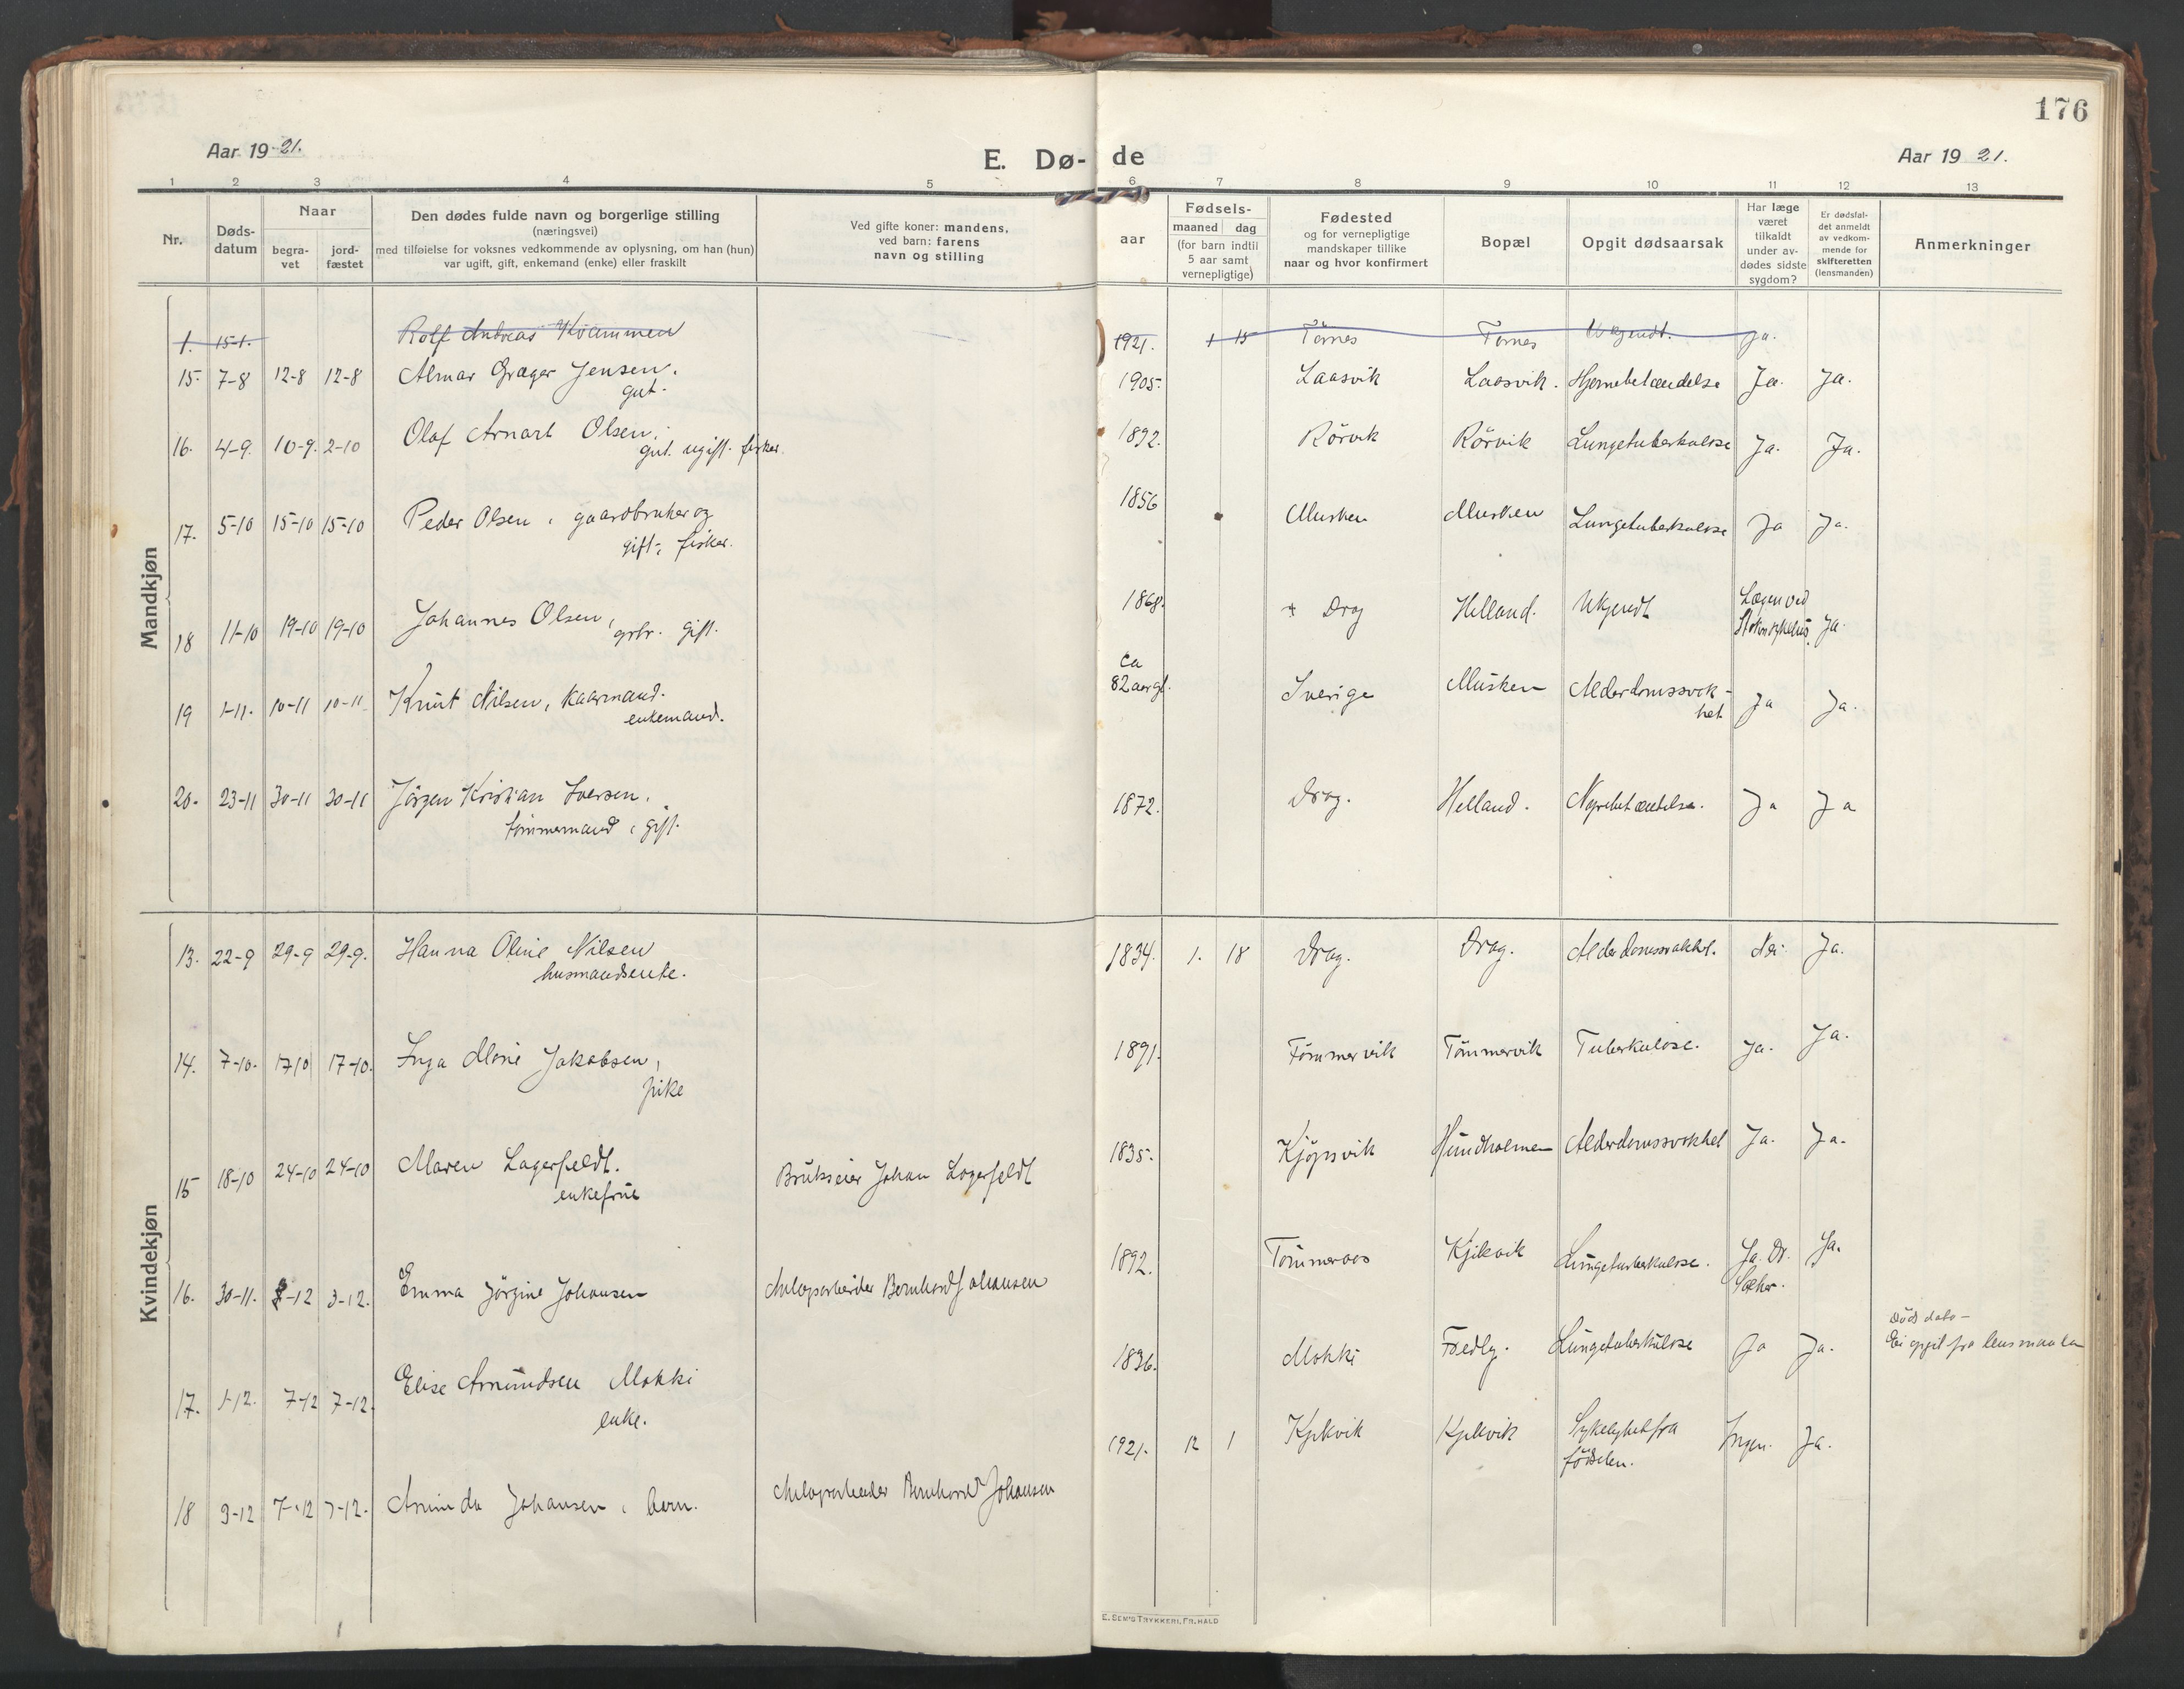 176
Aar 19-21.
E. Dø-
de
Aar 19 21.
1 2 3 4 5 6 7 8 9 10 11 12 13
Nr.
Døds-
datum
Naar
begra-
vet
jord-
fæstet
Den dødes fulde navn og borgerlige stilling
(næringsvei)
med tilføielse for voksnes vedkommende av oplysning, om han (hun)
var ugift, gift, enkemand (enke) eller fraskilt
Ved gifte koner: mandens,
ved barn: farens
navn og stilling
aar
Fødsels-
maaned dag
(for barn indtil
5 aar samt
vernepligtige)
Fødested
og for vernepligtige
mandskaper tillike
naar og hvor konfirmert
Bopæl
Opgit dødsaarsak
Har læge
været
tilkaldt
under av-
dødes sidste
sygdom?
Er dødsfal-
det anmeldt
av vedkom-
mende for
skifteretten
(lensmanden)
Anmerkninger
Mandkjøn
1. 15-1. Rolf Andreas Kvammen 1921. 1 15 Tørnes Tørnes Ukjendt. Ja.
15. 7-8 12-8 12-8 Almar Græger Jensen. 1905. Laasvik Laasvik. Hjernebetændelse Ja. Ja.
gut.
16. 4-9. 10-9. 2-10 Olaf Arnart Olsen, 1892. Rörvik Rörvik Lungetuberkulose Ja. Ja.
gut. ugift. fisker.
17. 5-10 15-10 15-10 Peder Olsen, gaardbruker og 1856 Musken Musken Lungetuberkulose Ja Ja.
gift, fisker.
18 11-10 19-10 19-10 Johannes Olsen, 1868. Drag Helland. Ukjendt Lægen ved Ja.
grbr. gift.
19 1-11. 10-11 10-11 Knut Nilsen, Kaarmand. ca
82 aar gl. Sverige Musken Alderdomssvak- Ja Ja.
enkemand. het
20. 23-11 30-11 30-11 Jörgen Kristian Iversen. 1872. Drag. Helland. Nyrebetændelse. Ja Ja
tömmermand, gift.
Kvindekjøn
13. 22-9 29-9 29-9. Hanna Oline Nilsen 1834. 1. 18 Drag. Drag. Alderdomssvakhet. Nei. Ja.
husmandsenke.
14. 7-10. 17 10 17-10. Inga Marie Jakobsen, 1891. Tömmervik Tömmervik Tuberkulose. Ja. Ja.
pike
15 18-10 24-10 24-10 Maren Lagerfeldt. Brukseier Johan Lagerfeldt 1835. Kjöpsvik Hundholmen Alderdomssvakhet Ja. Ja.
enkefrue
16. 30-11. 3-12 3-12. Emma Jörgine Johansen Anlægsarbeider Bernhard Johansen 1892. Tömmeraas Kjelkvik Lungetuberkulose. Ja. Dr. Ja.
17. 1-12. 7-12 7-12. Elise Amundsen Mokki 1836. Mokki Fredly. Lungetuberkulose Ja Ja. Döds dato-
Ei opgit fra lensmanden
enke.
18 3-12 7-12 7-12. Arnida Johansen, barn. Anlægsarbeider Bernhard Johansen 1921. 12 1 Kjelkvik Kjelkvik Sykelighet fra Ingen. Ja.
födselen.
E. SEM'S TRYKKERI, FR.HALD